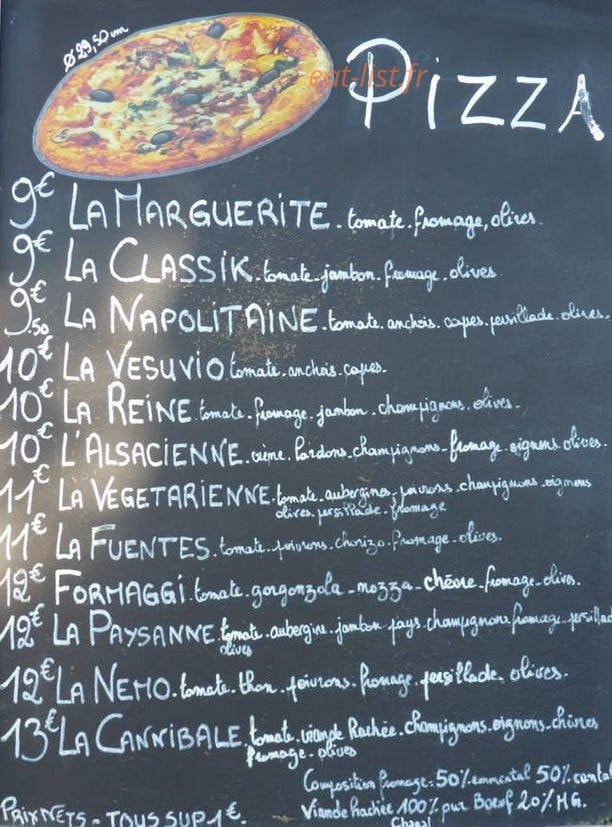 ø 29,50 cm
eat-list.fr
PIZZA
9€ LA MARGUERITE. tomate. fromage, olives.
9€ LA CLASSIK. tomate. jambon. fromage. olives
9€50 LA NAPOLITAINE. tomate. anchois. capes. persillade. olives.
10€ LA VESUVIO tomate. anchois. capes.
10€ LA REINE. tomate. fromage. jambon. champignons. olives.
10€ L'ALSACIENNE. crème. lardons. champignons. fromage. oignons. olives.
11€ LA VEGETARIENNE. tomate. aubergines. poivrons. champignons. oignons
olives. persillade. fromage
11€ LA FUENTES. tomate. poivrons. chorizo. fromage. olives.
12€ FORMAGGI. tomate. gorgonzola. mozza. chèvre. fromage. olives.
12€ LA PAYSANNE. tomate. aubergine. jambon pays. champignons. fromage. persillad
olives
12€ LA NEMO. tomate. thon. poivrons. fromage. persillade. olives.
13€ LA CANNIBALE. tomate. viande hachée. champignons. oignons. chèvres
fromage. olives
Composition fromage: 50% emmental 50% cantal
PRIX NETS - TOUS SUP 1€. Viande hachée 100% pur Boeuf 20% MG.